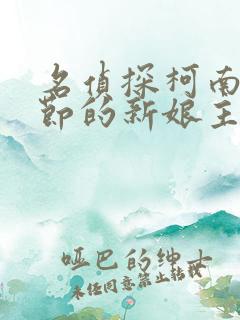 名偵探柯南
節的新娘主
哑巴的绅士
未经同意禁止转载